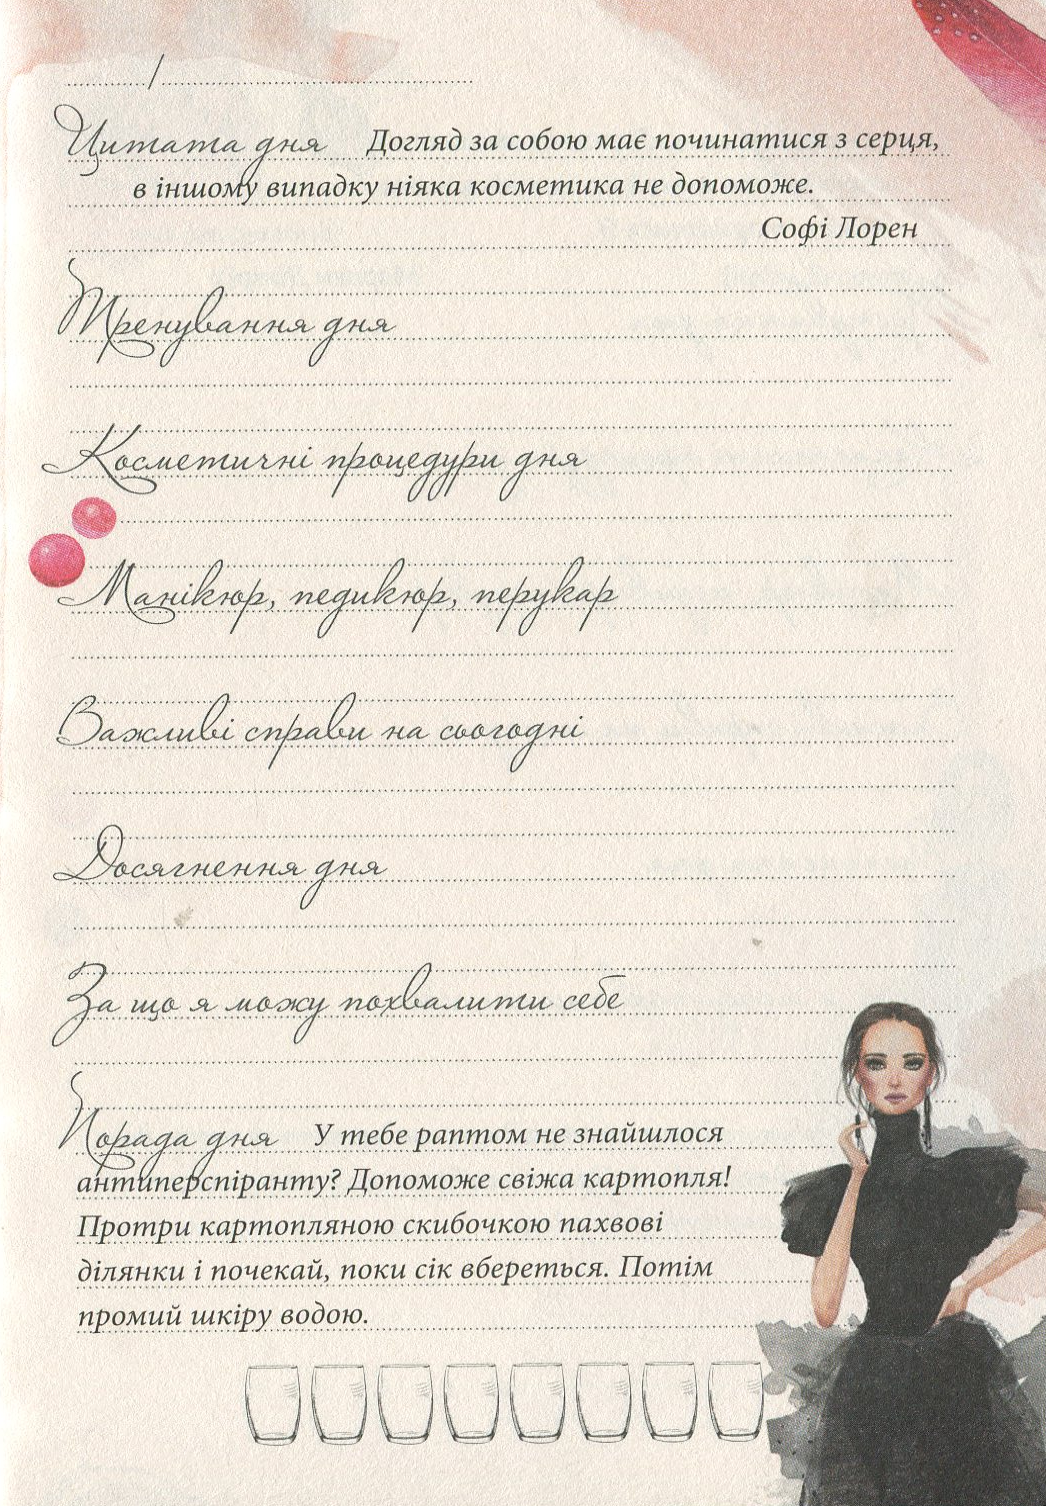 /
Цитата дня Догляд за собою має починатися з серця,
в іншому випадку ніяка косметика не допоможе.
Софі Лорен
Тренування дня
Косметичні процедури дня
Манікюр, педикюр, перукар
Важливі справи на сьогодні
Досягнення дня
За що я можу похвалити себе
Порада дня У тебе раптом не знайшлося
антиперспіранту? Допоможе свіжа картопля!
Протри картопляною скибочкою пахвові
ділянки і почекай, поки сік вбереться. Потім
промий шкіру водою.